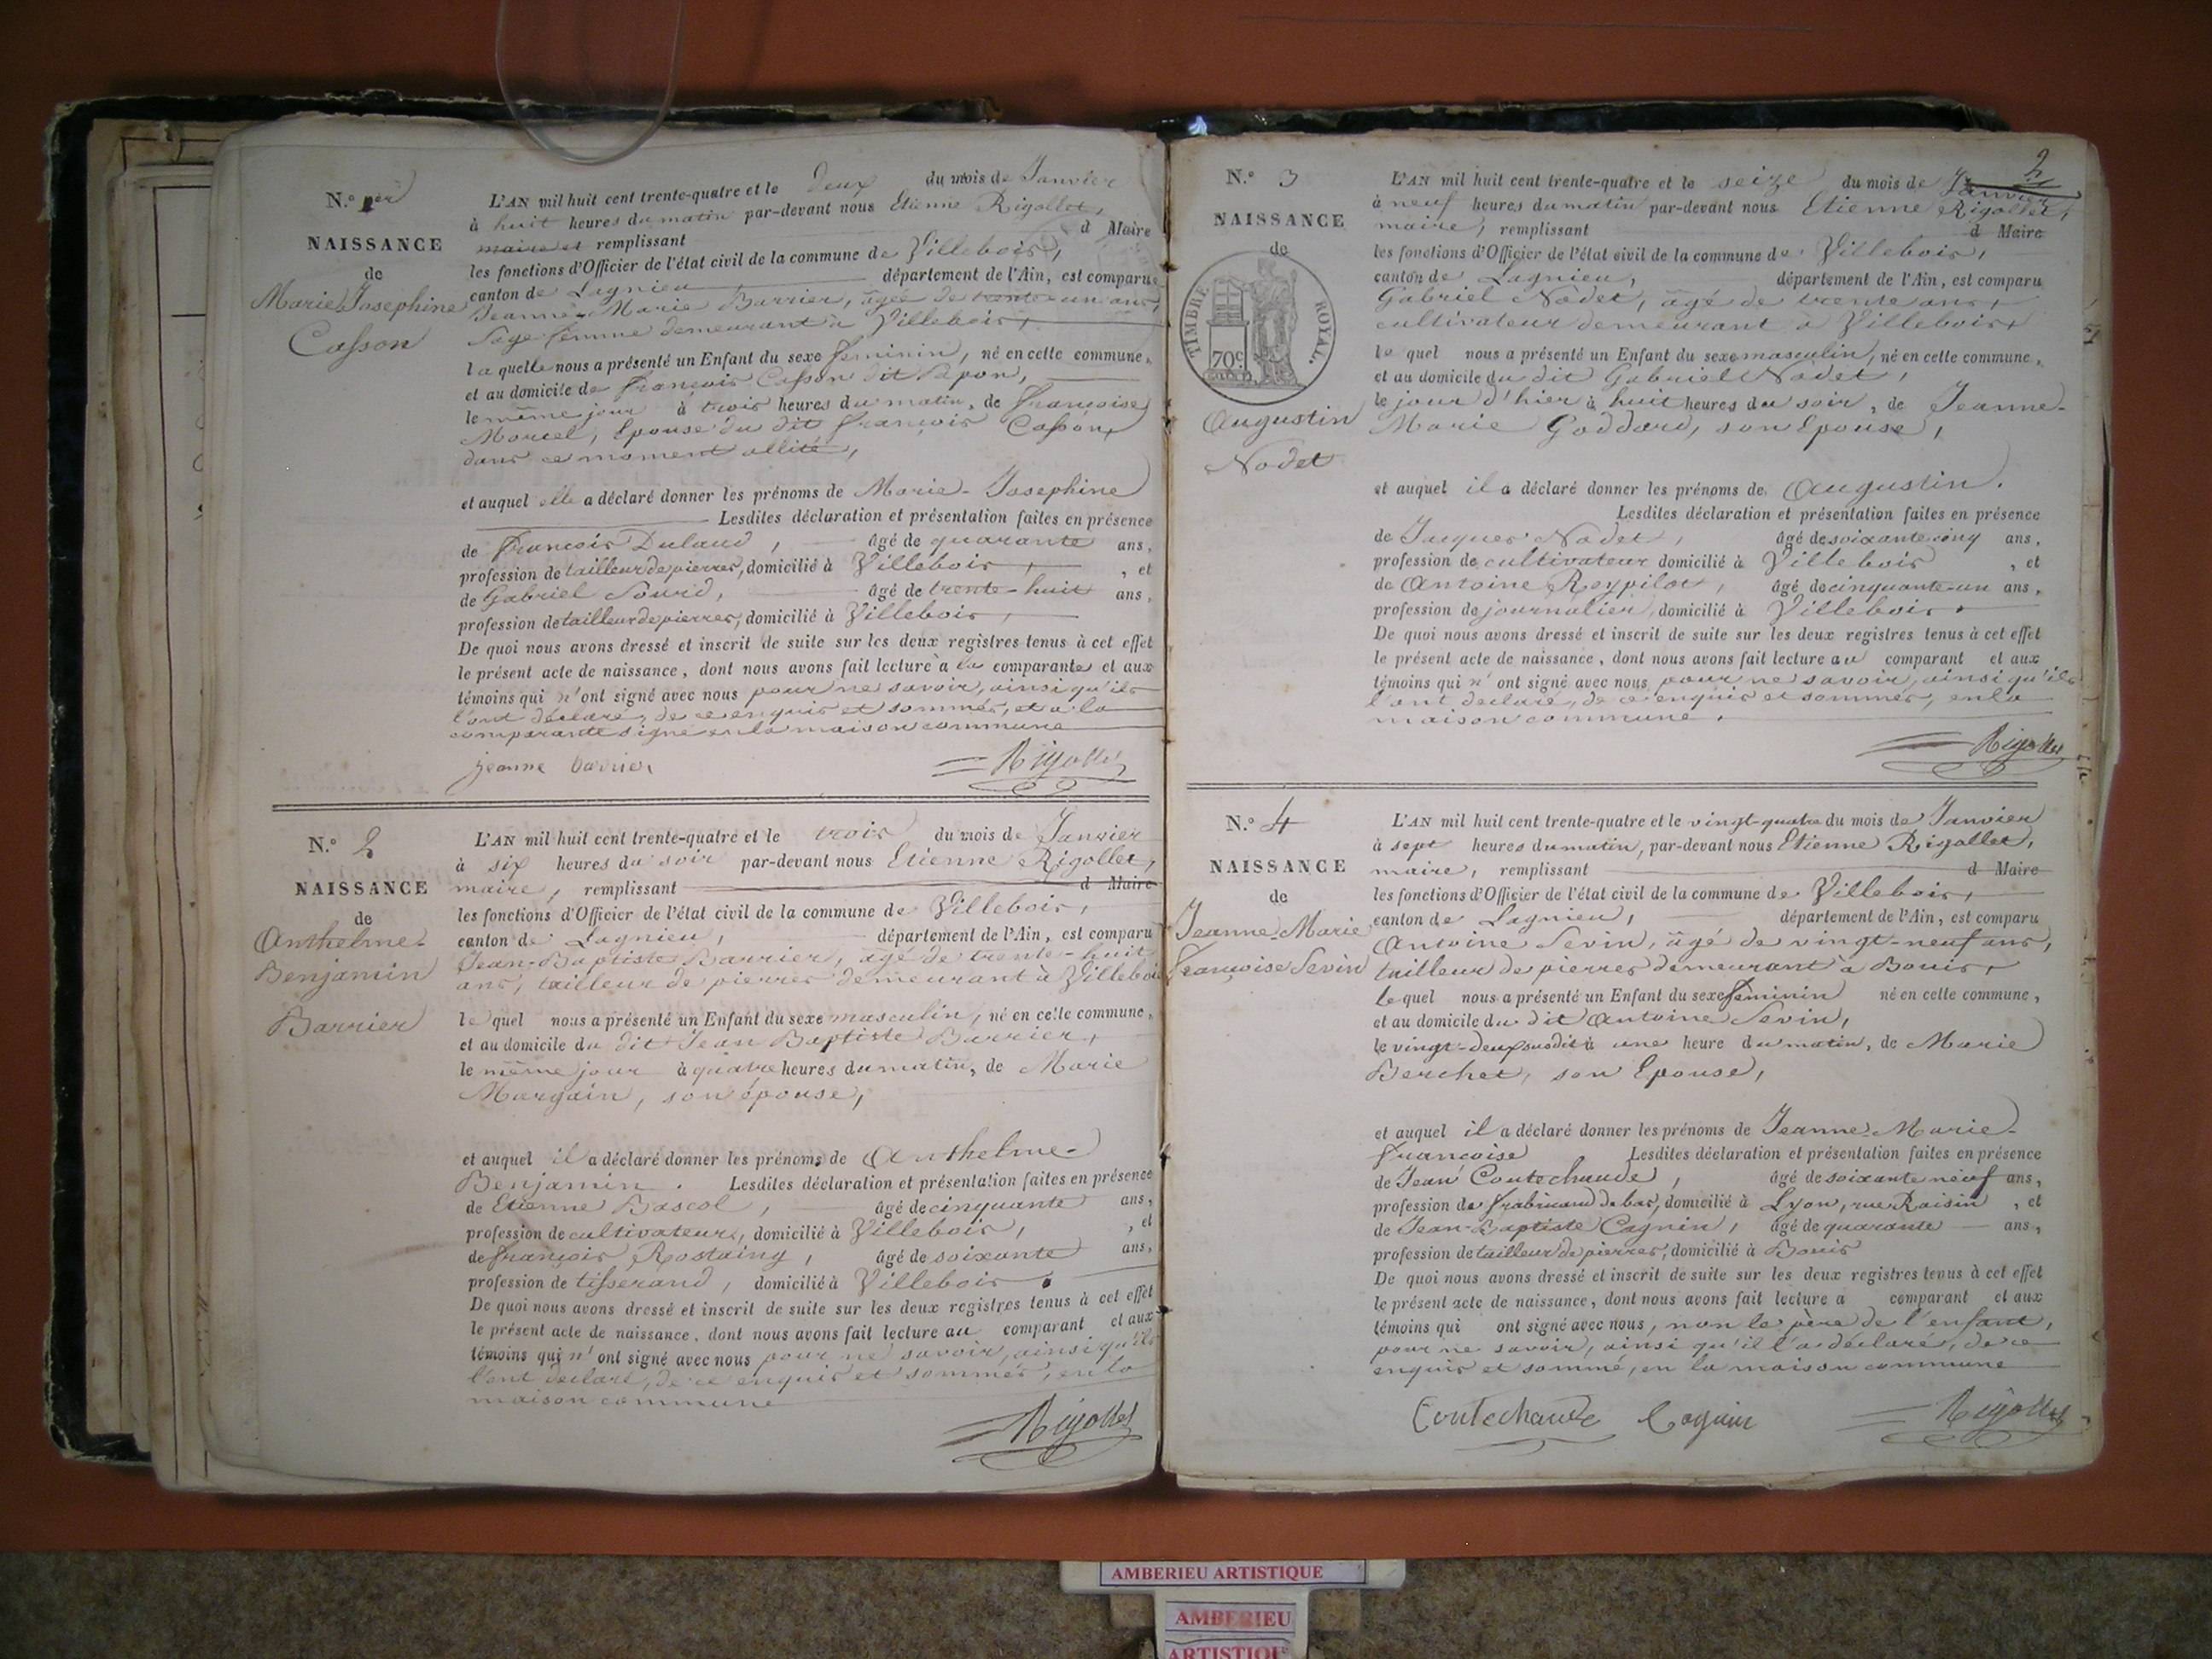 N.º 1er
NAISSANCE
de
Marie Josephine
Casson
L'AN mil huit cent trente-quatre et le deux du mois de Janvier
à huit heures du matin par-devant nous Etienne Rigollet,
maire et remplissant d Maire
les fonctions d'Officier de l'état civil de la commune de Villebois,
canton de Lagnieu, département de l'Ain, est comparue
Jeanne-Marie Barrier, âgée de trente un ans,
sage femme demeurant à Villebois,
la quelle nous a présenté un Enfant du sexe feminin, né en cette commune,
et au domicile de françois Casson dit Papon,
le même jour à trois heures du matin, de françoise
Morcel, Epouse du dit françois Casson,
dans ce moment allité,
et auquel elle a déclaré donner les prénoms de Marie-Josephine
Lesdites déclaration et présentation faites en présence
de françois Dulaud, âgé de quarante ans,
profession de tailleur de pierres, domicilié à Villebois, et
de Gabriel Sourd, âgé de trente-huit ans,
profession de tailleur de pierres, domicilié à Villebois,
De quoi nous avons dressé et inscrit de suite sur les deux registres tenus à cet effet
le présent acte de naissance, dont nous avons fait lecture à la comparante et aux
témoins qui n'ont signé avec nous pour ne savoir, ainsi qu'ils
l'ont déclaré, de ce enquis et sommés, et a la
comparante signé en la maison commune
jeanne barrier Rigollet
N.º 2
NAISSANCE
de
Anthelme-
Benjamin
Barrier
L'AN mil huit cent trente-quatre et le trois du mois de Janvier
à six heures du soir par-devant nous Etienne Rigollet,
maire, remplissant d Maire
les fonctions d'Officier de l'état civil de la commune de Villebois,
canton de Lagnieu, département de l'Ain, est comparu
Jean-Baptiste Barrier, âgé de trente-huit
ans, tailleur de pierres demeurant à Villebois
le quel nous a présenté un Enfant du sexe masculin, né en cette commune,
et au domicile du dit Jean Baptiste Barrier,
le même jour à quatre heures du matin, de Marie
Margain, son épouse,
et auquel il a déclaré donner les prénoms de Anthelme-
Benjamin. Lesdites déclaration et présentation faites en présence
de Etienne Bascol, âgé de cinquante ans,
profession de cultivateur, domicilié à Villebois, , et
de françois Rostaing, âgé de soixante ans,
profession de tisserand, domicilié à Villebois.
De quoi nous avons dressé et inscrit de suite sur les deux registres tenus à cet effet
le présent acte de naissance, dont nous avons fait lecture au comparant et aux
témoins qui n'ont signé avec nous pour ne savoir, ainsi qu'ils
l'ont déclaré, de ce enquis et sommés, en la
maison commune
Rigollet
2
N.º 3
NAISSANCE
de
TIMBRE ROYAL.
70c
Augustin
Nodet
L'AN mil huit cent trente-quatre et le seize du mois de Janvier
à neuf heures du matin par-devant nous Etienne Rigollet,
maire, remplissant d Maire
les fonctions d'Officier de l'état civil de la commune de Villebois,
canton de Lagnieu, département de l'Ain, est comparu
Gabriel Nodet, âgé de trente ans,
cultivateur demeurant à Villebois,
le quel nous a présenté un Enfant du sexe masculin, né en cette commune,
et au domicile du dit Gabriel Nodet,
le jour d'hier à huit heures du soir, de Jeanne-
Marie Goddard, son Epouse,
et auquel il a déclaré donner les prénoms de Augustin.
Lesdites déclaration et présentation faites en présence
de Jacques Nodet, âgé de soixante cinq ans,
profession de cultivateur domicilié à Villebois , et
de Antoine Reypilot, âgé de cinquante-un ans,
profession de journalier, domicilié à Villebois.
De quoi nous avons dressé et inscrit de suite sur les deux registres tenus à cet effet
le présent acte de naissance, dont nous avons fait lecture au comparant et aux
témoins qui n'ont signé avec nous pour ne savoir, ainsi qu'ils
l'ont déclaré, de ce enquis et sommés, en la
maison commune.
Rigollet
N.º 4
NAISSANCE
de
Jeanne-Marie
françoise Sevin
L'AN mil huit cent trente-quatre et le vingt-quatre du mois de Janvier
à sept heures du matin, par-devant nous Etienne Rigollet,
maire, remplissant d Maire
les fonctions d'Officier de l'état civil de la commune de Villebois,
canton de Lagnieu, département de l'Ain, est comparu
Antoine Sevin, âgé de vingt-neuf ans,
tailleur de pierres demeurant à Bouis,
le quel nous a présenté un Enfant du sexe féminin né en cette commune,
et au domicile du dit Antoine Sevin,
le vingt-deux susdit à une heure du matin, de Marie
Berchet, son Epouse,
et auquel il a déclaré donner les prénoms de Jeanne-Marie-
françoise Lesdites déclaration et présentation faites en présence
de Jean Coutechaude, âgé de soixante neuf ans,
profession de de bas, domicilié à Lyon, rue Raisin , et
de Jean-Baptiste Cagnin, âgé de quarante ans,
profession de tailleur de pierres, domicilié à Bouis
De quoi nous avons dressé et inscrit de suite sur les deux registres tenus à cet effet
le présent acte de naissance, dont nous avons fait lecture a comparant et aux
témoins qui ont signé avec nous, non le père de l'enfant,
pour ne savoir, ainsi qu'il l'a déclaré, de ce
enquis et sommé, en la maison commune
Coutechaude Cagnin Rigollet
AMBERIEU ARTISTIQUE
AMBERIEU
ARTISTIQUE